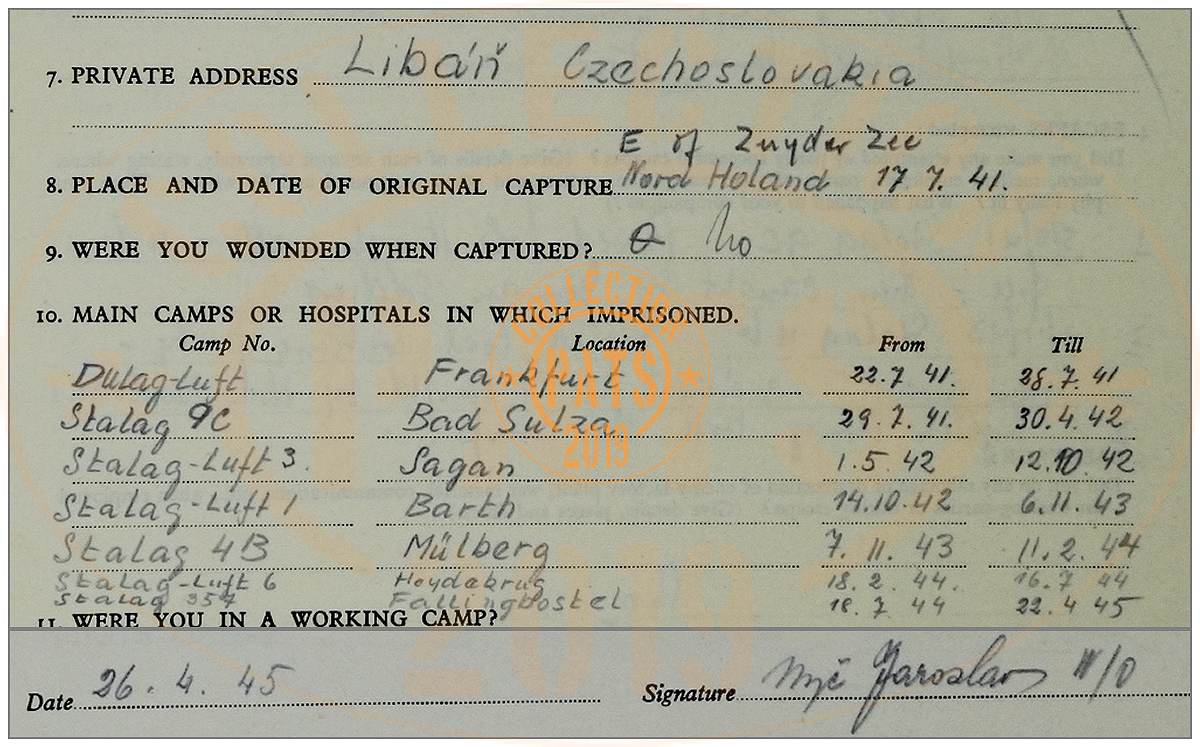 7. PRIVATE ADDRESS Libáň Czechoslovakia
E of Zuyder Zee
8. PLACE AND DATE OF ORIGINAL CAPTURE Nord Holand 17 7. 41.
9. WERE YOU WOUNDED WHEN CAPTURED? No
10. MAIN CAMPS OR HOSPITALS IN WHICH IMPRISONED.
Camp No. Location From Till
Dulag-Luft Frankfurt 22.7 41. 28.7.41
Stalag 9C Bad Sulza 29.7.41. 30.4.42
Stalag-Luft 3. Sagan 1.5 42 12.10.42
Stalag-Luft 1 Barth 14.10.42 6.11.43
Stalag 4B Mülberg 7.11.43 11.2.44
Stalag-Luft 6 Heydekrug 18.2.44. 16.7 44
Stalag 357 Fallingbostel 18.7 44 22.4 45
11. WERE YOU IN A WORKING CAMP?
Date 26.4.45 Signature Jaroslav W/O
COLLECTION
PATS
2019